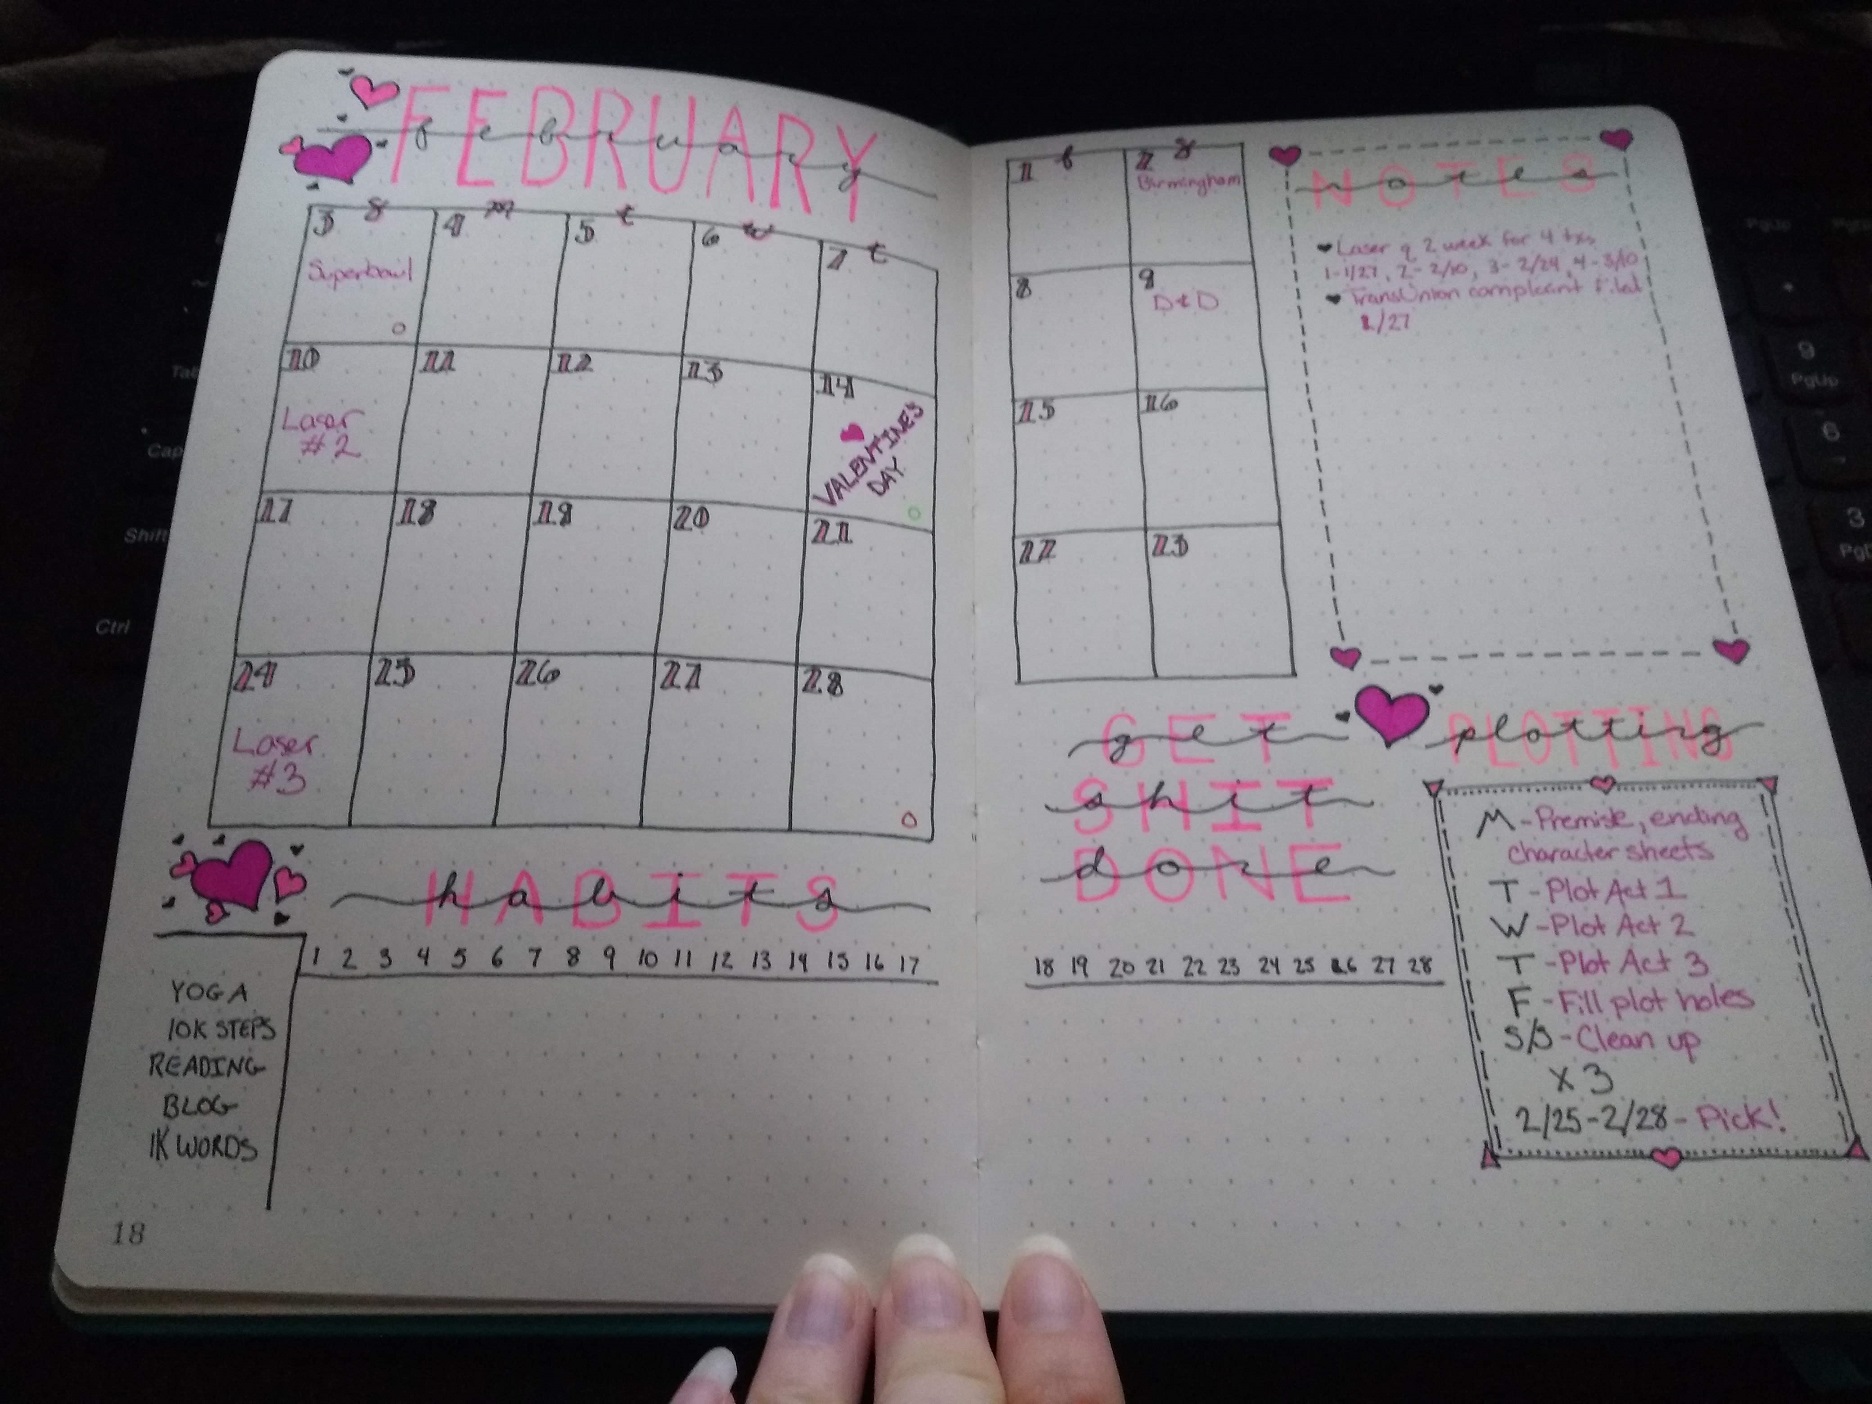 FEBRUARY
february
s m t w t
3 4 5 6 7
Superbowl
10 11 12 13 14
Laser
#2
VALENTINES
DAY
17 18 19 20 21
24 25 26 27 28
Laser
#3
HABITS
habits
1 2 3 4 5 6 7 8 9 10 11 12 13 14 15 16 17
YOGA
10K STEPS
READING
BLOG
1K WORDS
18
f s
1 2
Birmingham
8 9
D&D
15 16
22 23
NOTES
notes
Laser q 2 week for 4 txs
1-1/27, 2-2/10, 3-2/24, 4-3/10
TransUnion complaint filed
1/27
GET
get
SHIT
shit
DONE
done
18 19 20 21 22 23 24 25 26 27 28
PLOTTING
plotting
M-Premise, ending
character sheets
T-Plot Act 1
W-Plot Act 2
T-Plot Act 3
F-Fill plot holes
S/S-Clean up
x3
2/25-2/28-Pick!
Tab
Cap
Shift
Ctrl
9
PgUp
6
3